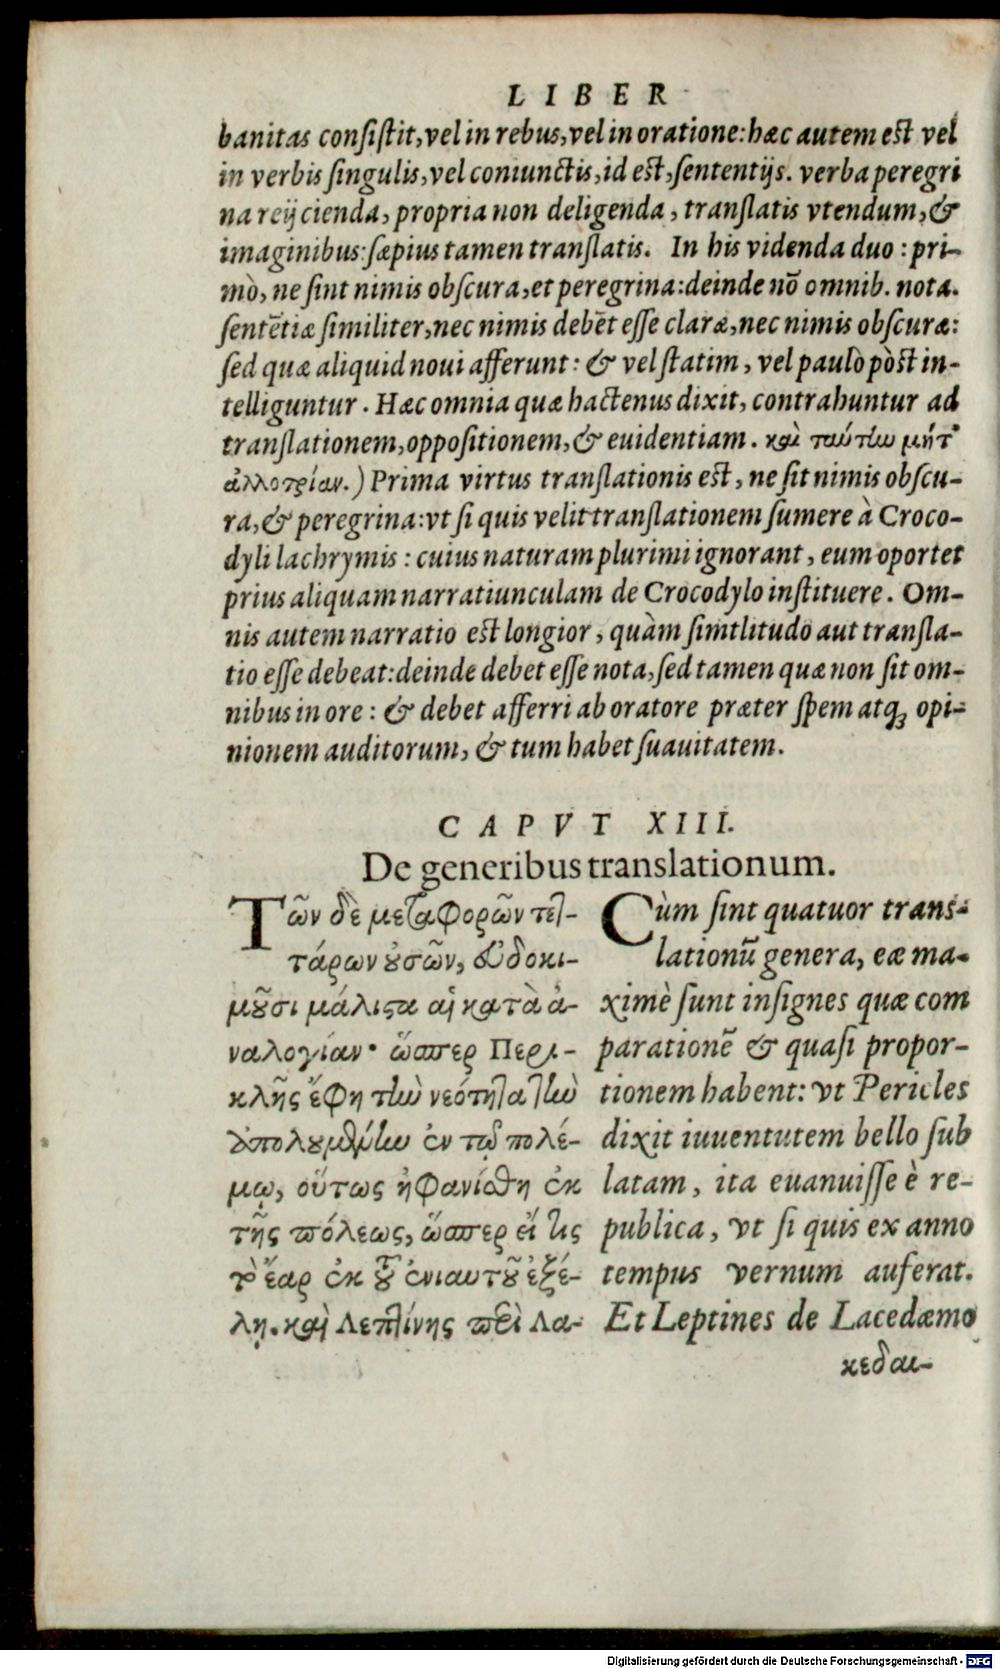 LIBER
banitas consistit, vel in rebus, vel in oratione: hæc autem est vel
in verbis singulis, vel coniunctis, id est, sententijs. verba peregri
na reijcienda, propria non deligenda, translatis vtendum, &
imaginibus: sæpius tamen translatis. In his videnda duo: pri-
mò, ne sint nimis obscura, et peregrina: deinde nō omnib. nota.
sentētiæ similiter, nec nimis debēt esse claræ, nec nimis obscuræ:
sed quæ aliquid noui afferunt: & vel statim, vel paulò pòst in-
telliguntur. Hæc omnia quæ hactenus dixit, contrahuntur ad
translationem, oppositionem, & euidentiam. καὶ ταύτην μήτ'
ἀλλοτρίαν.) Prima virtus translationis est, ne sit nimis obscu-
ra, & peregrina: vt si quis velit translationem sumere à Croco-
dyli lachrymis: cuius naturam plurimi ignorant, eum oportet
prius aliquam narratiunculam de Crocodylo instituere. Om-
nis autem narratio est longior, quàm simtlitudo aut transla-
tio esse debeat: deinde debet esse nota, sed tamen quæ non sit om-
nibus in ore: & debet afferri ab oratore præter spem atq; opi-
nionem auditorum, & tum habet suauitatem.
CAPVT XIII.
De generibus translationum.
Τῶν δὲ μεταφορῶν τετ-
τάρων οὐσῶν, εὐδοκι-
μοῦσι μάλιστα αἱ κατὰ ἀ-
ναλογίαν· ὥσπερ Περι-
κλῆς ἔφη τὴν νεότητα τὴν
ἀπολουμένην ἐν τῷ πολέ-
μῳ, οὕτως ἠφανίσθη ἐκ
τῆς πόλεως, ὥσπερ εἴ τις
τὸ ἔαρ ἐκ τοῦ ἐνιαυτοῦ ἐξέ-
λῃ. καὶ Λεπτίνης περὶ Λα-
Cùm sint quatuor trans-
lationū genera, eæ ma-
ximè sunt insignes quæ com
parationē & quasi propor-
tionem habent: vt Pericles
dixit iuuentutem bello sub
latam, ita euanuisse è re-
publica, vt si quis ex anno
tempus vernum auferat.
Et Leptines de Lacedæmo
κεδαι-
Digitalisierung gefördert durch die Deutsche Forschungsgemeinschaft - DFG